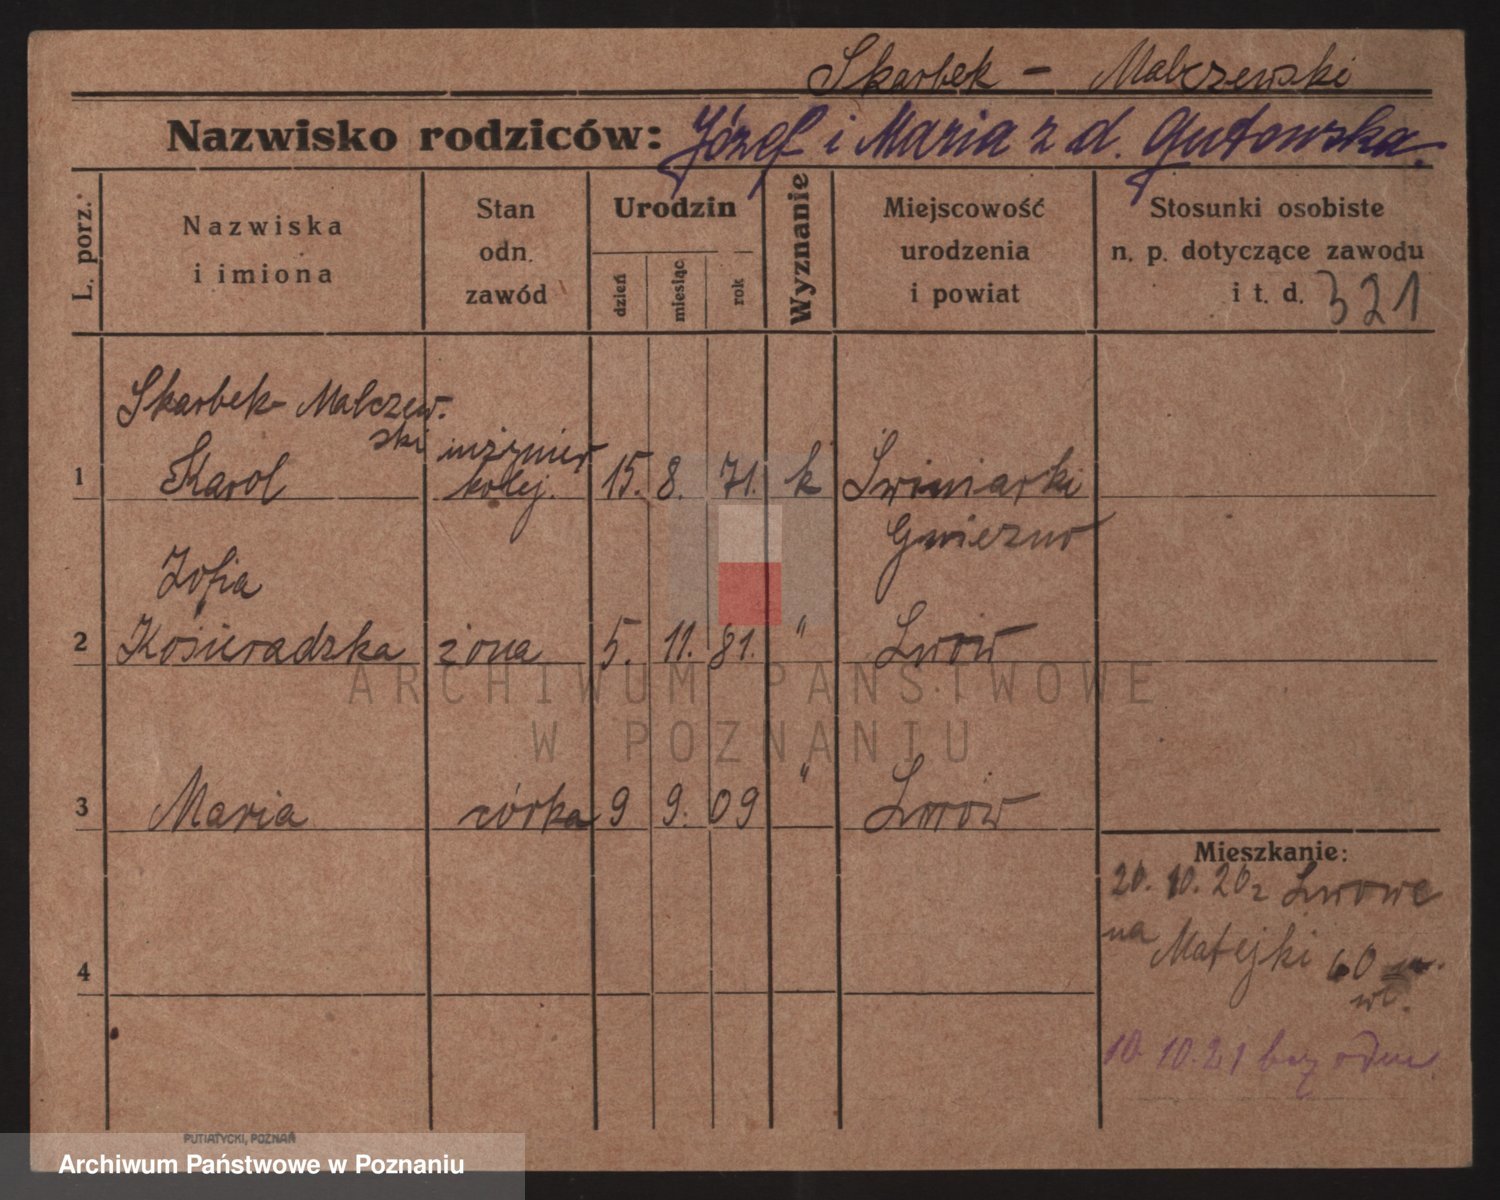 Skarbek - Malczewski
Nazwisko rodziców: Józef i Maria z d. Gutowska.
L. porz.
Nazwiska
i imiona
Stan
odn.
zawód
Urodzin
dzień
miesiąc
rok
Wyznanie
Miejscowość
urodzenia
i powiat
Stosunki osobiste
n. p. dotyczące zawodu
i t. d. 321
Skarbek- Malczew-
ski inżynier
1 Karol kolej. 15. 8. 71. k Swiniarki
Gniezno
Zofia
2 Kosieradzka żona 5. 11. 81. " Lwów
ARCHIWUM PAŃSTWOWE
W POZNANIU
3 Maria córka 9 9. 09 " Lwów
Mieszkanie:
20. 10. 20 z Lwowa
na Matejki 60
wł.
4
10. 10. 21 bez odm.
PUTIATYCKI, POZNAŃ
Archiwum Państwowe w Poznaniu